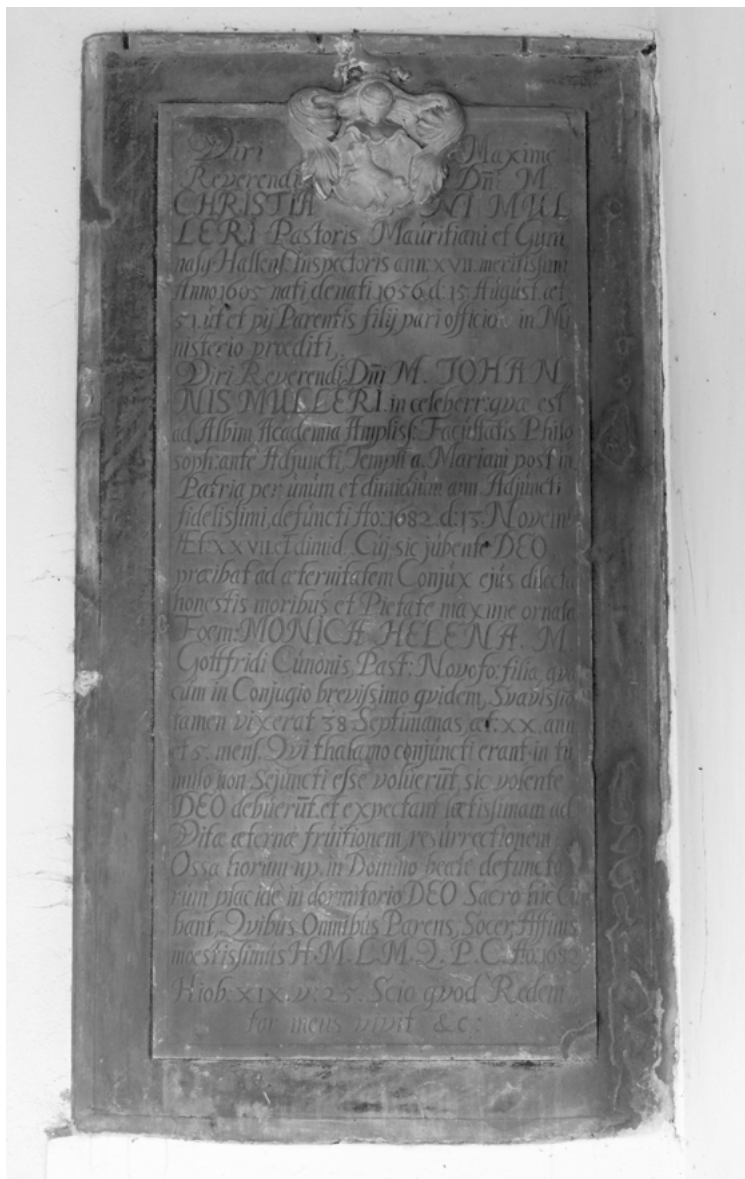 Viri Maxime
Reverendi Dn̄i M.
CHRISTIANI MUL
LERI Pastoris Mauritiani et Gym
nasij Hallens: Inspectoris ann: XVII. meritissimi
Anno 1605 nati denati 1656 d: 15 August. æt
51. ut et pij Parentis filij pari officio in Mi
nisterio præditi,
Viri Reverendi Dn̄i M. JOHAN
NIS MULLERI. in celeberr: qvæ est
ad Albim Academia Ampliss: Facultatis Philo
soph: ante Adjuncti, Templi a. Mariani post in
Patria per unum et dimidium ann. Adjuncti
fidelissimi, defuncti Ao: 1682. d: 15. Novem:
Æt: XXVII. et dimid. Cuj sic jubente DEO
præibat ad æternitatem Conjux ejus dilecta
honestis moribus et Pietate maxime ornata
Foem: MONICA HELENA. M.
Gottfridi Cunonis, Past: Novofo: filia, qva
cum in Conjugio brevissimo qvidem, Svavissio
tamen vixerat 38 Septimanas æt: XX. ann
et 5. mens. Qvi thalamo conjuncti erant in tu
mulo non Sejuncti esse voluerūt, sic volente
DEO debuerūt. et expectant lætissimam ad
Vitæ æternæ fruitionem, resurrectionem
Ossa horum up. in Domino beate defuncto
rum placide in dormitorio DEO Sacro hic Cu
bant, Qvibus Omnibus Parens, Socer, Affinis
moestissimus H. M. L. M. Q. P. C. Ao: 1682
Hiob: XIX. v: 25. Scio qvod Redem
tor meus vivit &c: